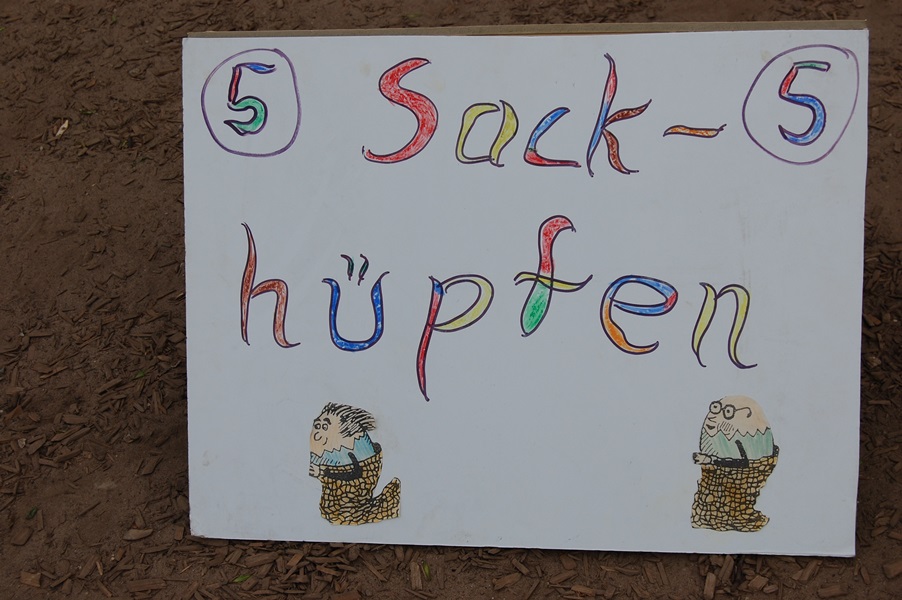 5 Sack- 5
hüpfen